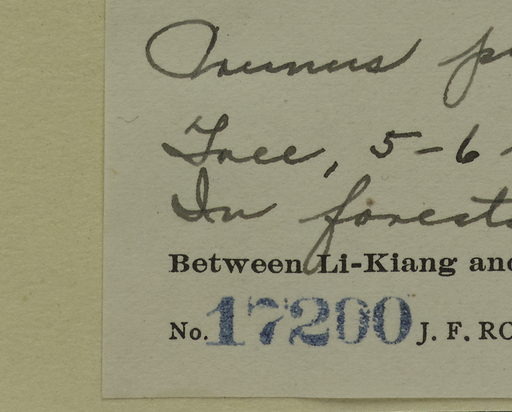 Prunus p
Tree, 5-6
In forests
Between Li-Kiang and
No. 17200 J. F. RO